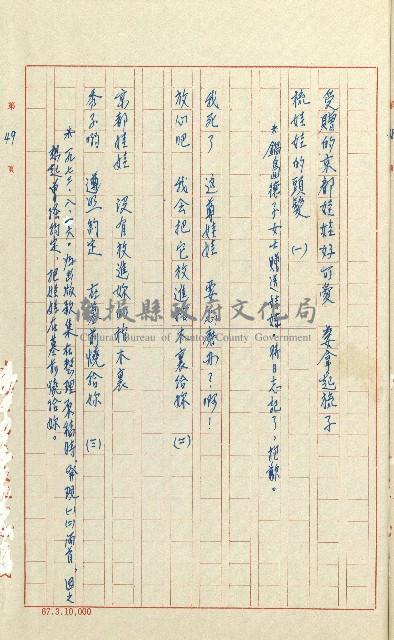 受贈的京都娃娃好可愛 妻拿起梳子
梳娃娃的頭髮 (一)
*鍋島德子女士贈送娃娃時日忘記了，抱歉。
我死了 这尊娃娃 要怎麼办？啊！
放心吧 我会把它放進棺木裏給妳 (二)
京都娃娃 沒有放進妳棺木裏
黍子喲 遵照約定 在墓前燒給妳 (三)
*一九七六．八．一天。為出版歌集在整理原稿時，發現(一)(二)兩首，因之
想起曾經約定，把娃娃在墓前燒給妳。
第 49 頁
南投縣政府文化局
Cultural Bureau of Nantou County Government
67.3.10,000